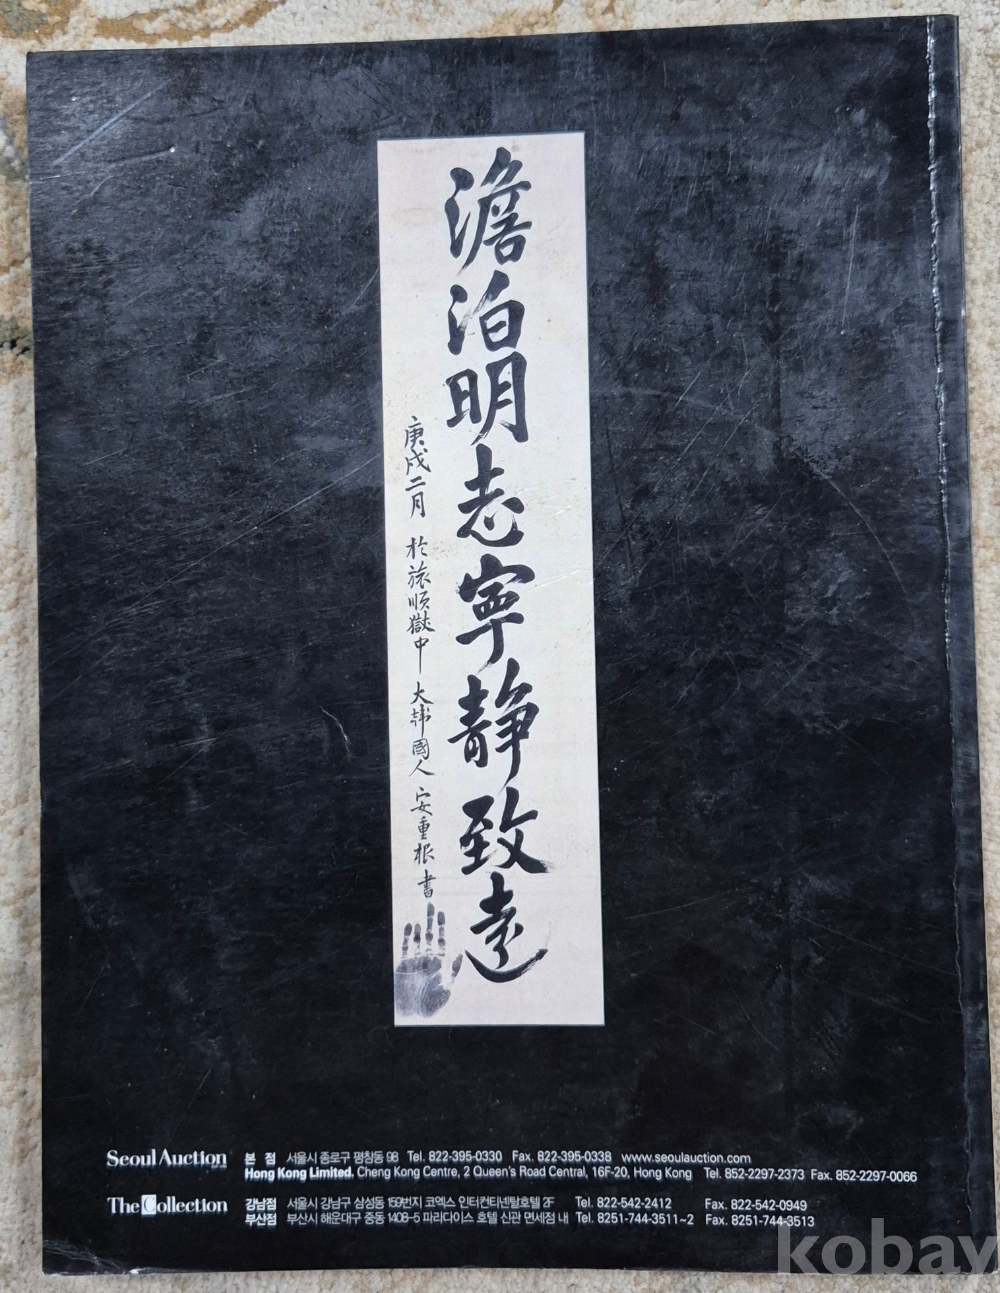 澹泊明志寧静致遠
庚戌二月 於旅順獄中 大韓國人 安重根 書
Seoul Auction 본 점 서울시 종로구 평창동 98 Tel. 822-395-0330 Fax. 822-395-0338 www.seoulauction.com
Hong Kong Limited. Cheng Kong Centre, 2 Queen's Road Central, 16F-20, Hong Kong Tel. 852-2297-2373 Fax. 852-2297-0066
The Collection 강남점 서울시 강남구 삼성동 159번지 코엑스 인터컨티넨탈호텔 2F Tel. 822-542-2412 Fax. 822-542-0949
부산점 부산시 해운대구 중동 1408-5 파라다이스 호텔 신관 면세점 내 Tel. 8251-744-3511~2 Fax. 8251-744-3513
kobay